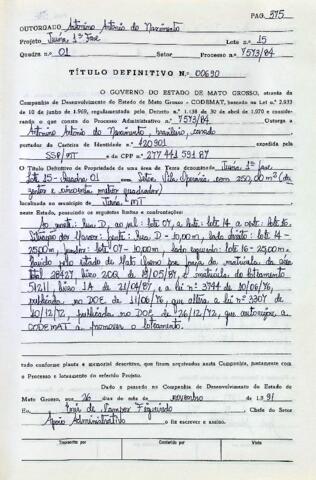 PAG. 375
OUTORGADO Antonino Antonio do Nascimento
Projeto Juína 1ª Fase Lote n.º 15
Quadra n.º 01 Setor Processo n.º 7573/84
TÍTULO DEFINITIVO N.º 00690
O GOVERNO DO ESTADO DE MATO GROSSO, através da
Companhia de Desenvolvimento do Estado de Mato Grosso - CODEMAT, baseado na Lei n.º 2.933
de 10 de junho de 1.969, regulamentada pelo Decreto n.º 1.138 de 30 de abril de 1.970 e conside-
rando o que consta do Processo Administrativo n.º 7573/84 Outorga a
Antonino Antonio do Nascimento, brasileiro, casado
portador da Carteira de Identidade n.º 420901 expedida pela
SSP/MT e do CPF n.º 277 441 591 87
O Título Definitivo de Propriedade de uma área de Terra denominada Juína, 1ª fase
Lote 15 - Quadra 01 Setor: Vila Operária com 250,00 m² (du
zentos e cincoenta metros quadrados)
localizada no município de Juína/MT
neste Estado, possuindo os seguintes limites e confrontações:
Ao norte: Rua D, ao sul: lote 07, a leste: lote 14 a oeste: lote 16.
frente: Rua D - 10,00m, lado direito: lote 14
25,00m, fundos: lote 07 - 10,00m, lado esquerdo: lote 16 - 25,00m
Havido pelo estado de Mato Grosso por força da matrícula da área
total 28427 livro 2DQ de 19/05/87, e matrícula do loteamento
51211, livro 1A de 21/04/87, e a lei nº 3744 de 10/06/76,
publicada no DOE de 11/06/76, que altera a lei nº 3307 de
20/12/72, publicada no DOE de 26/12/72, que autorizou a
CODEMAT a promover o loteamento.
tudo conforme planta e memorial descritivo, que ficam arquivados nesta Companhia, juntamente com
o Processo e loteamento do referido Projeto.
Dado e passado na Companhia de Desenvolvimento do Estado de
Mato Grosso, aos 26 dias do mês de novembro de 1.991
Eu, Enai de Campos Figueiredo, Chefe do Setor
Apoio Administrativo o fiz escrever e assino.
Transcrito por Conferido por Visto